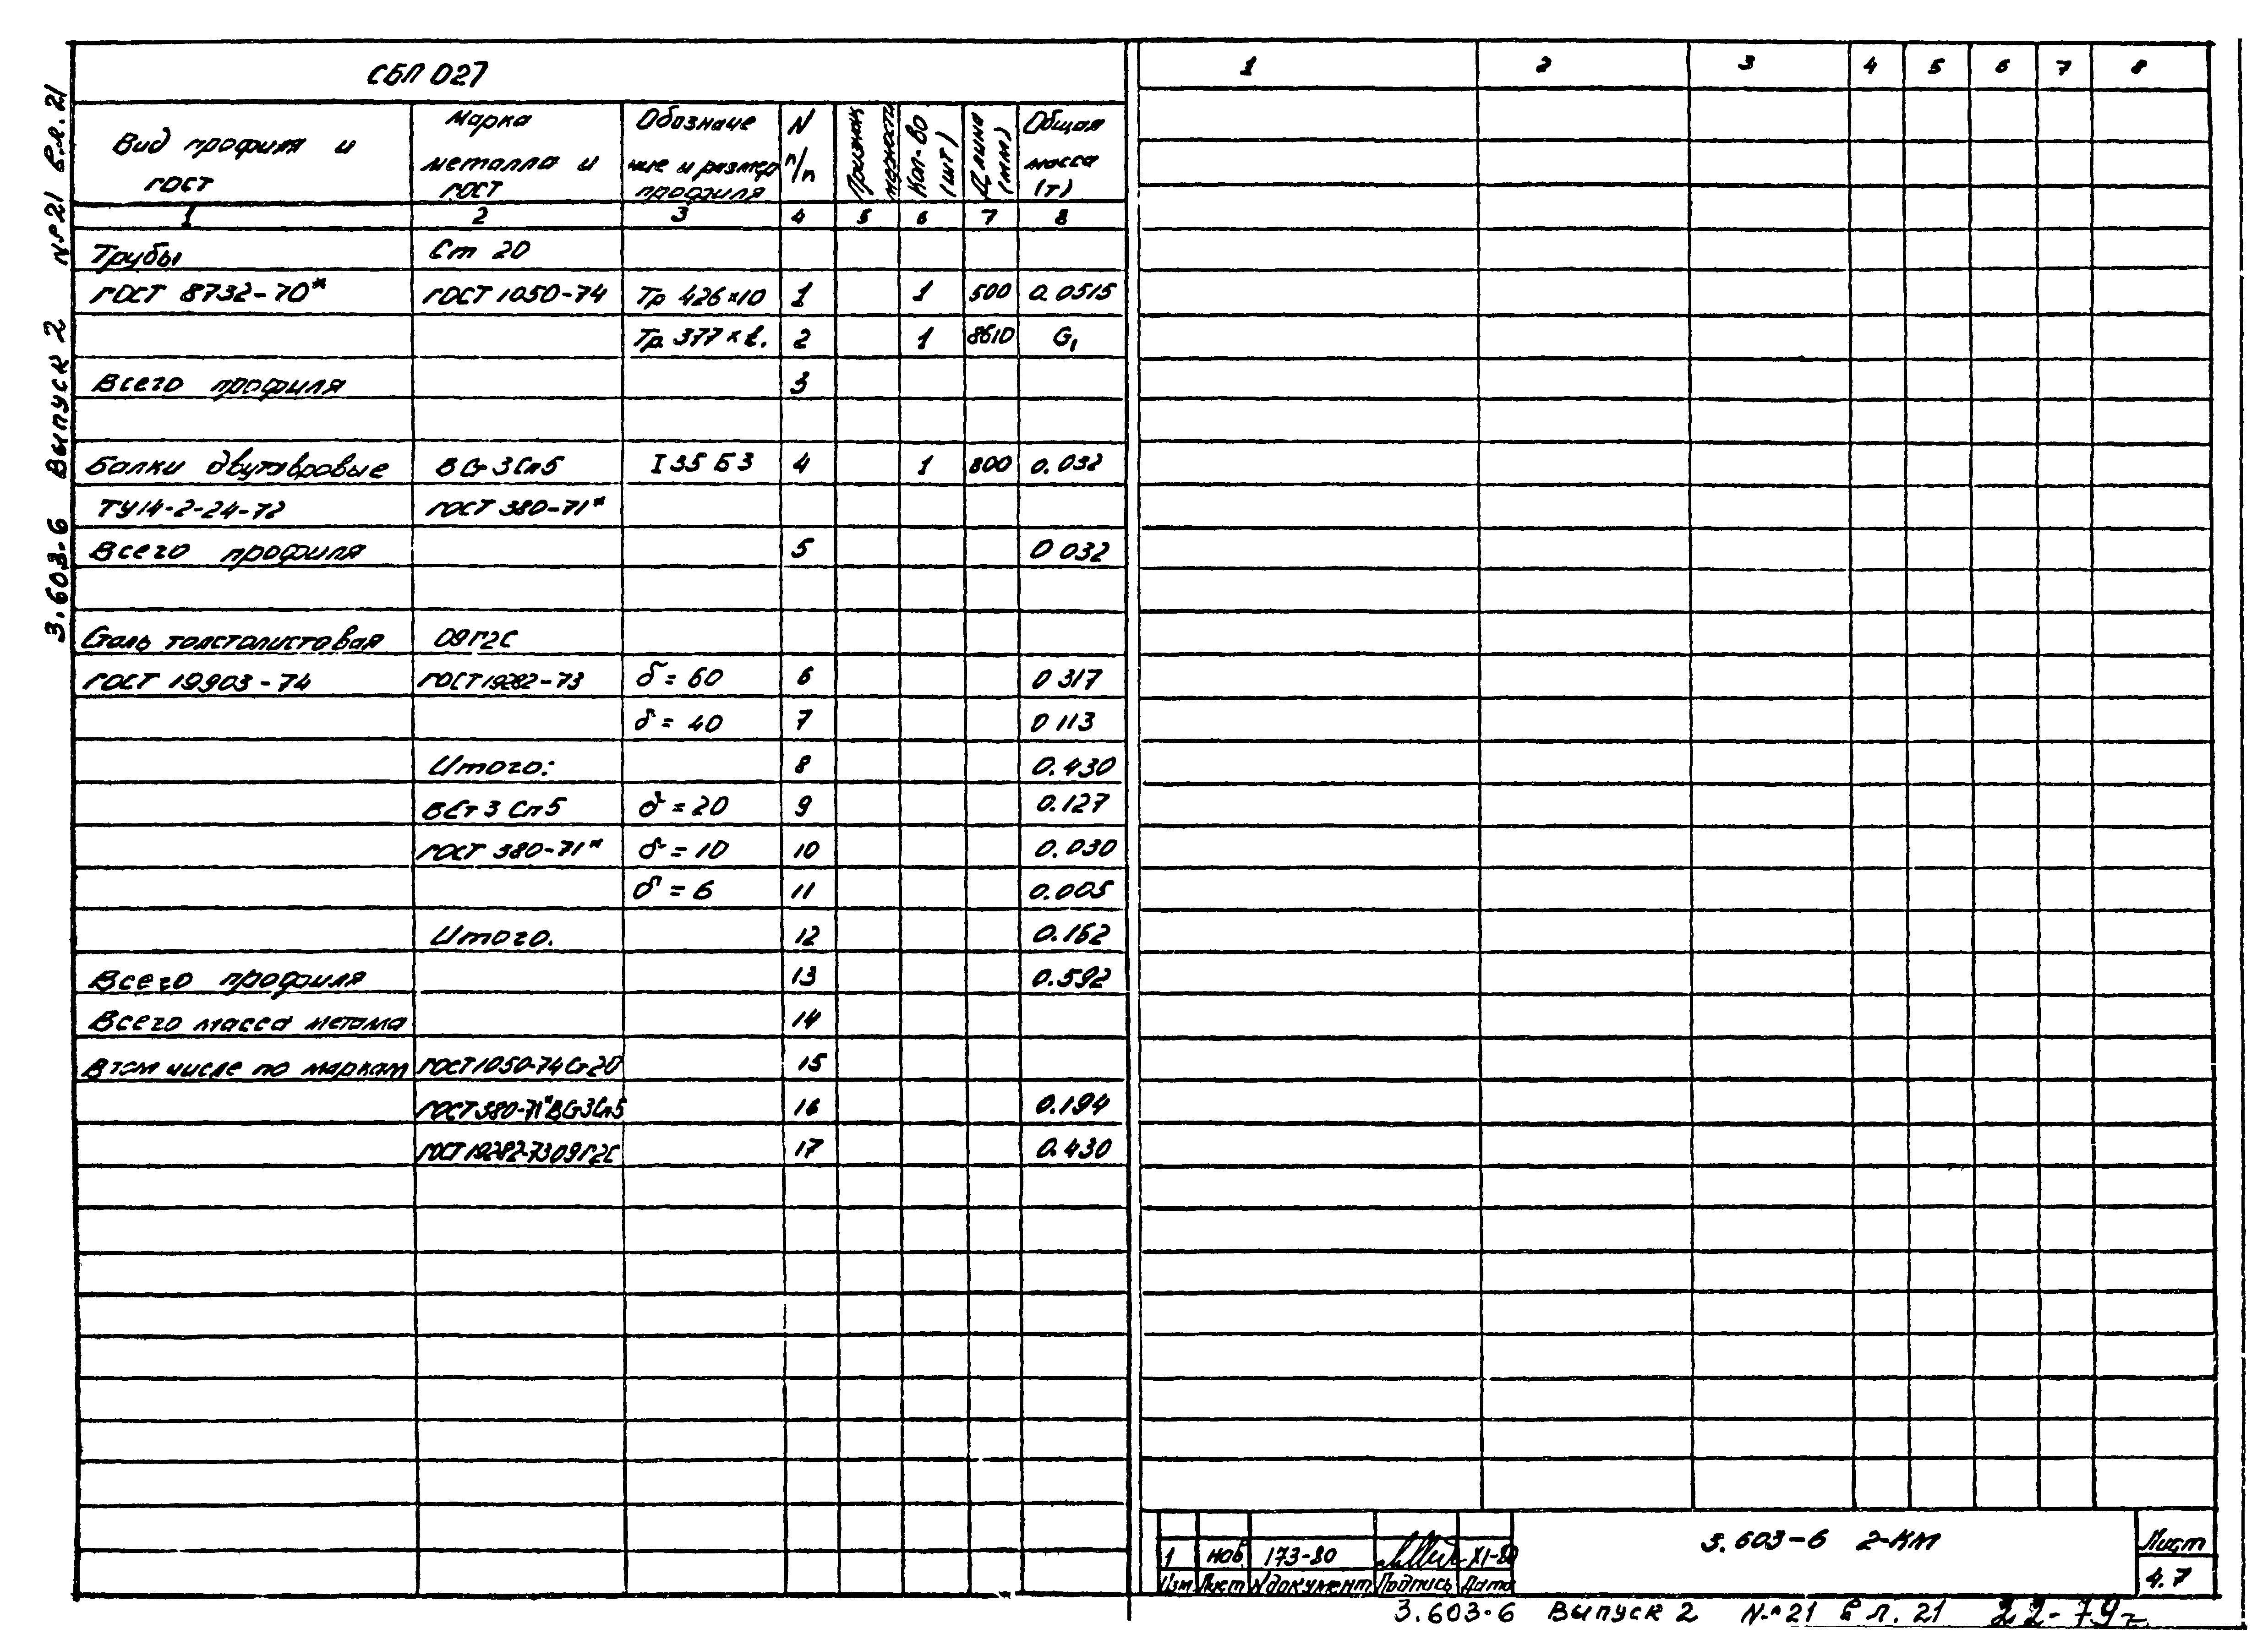 СБП 027
Вид профиля и ГОСТ
Марка металла и ГОСТ
Обозначе ние и размер профиля
N п/п
Признак
Кол-во (шт)
Длина (мм)
Общая масса (т)
1 2 3 4 5 6 7 8
Трубы Ст 20
ГОСТ 8732-70* ГОСТ 1050-74 Тр 426×10 1 1 500 0.0515
Тр 377× 2 1 8610 G1
Всего профиля 3
Балки двутавровые ВСт3Сп5 I 35 Б 3 4 1 800 0.032
ТУ14-2-24-72 ГОСТ 380-71*
Всего профиля 5 0 032
Сталь толстолистовая 09Г2С
ГОСТ 19903-74 ГОСТ 19282-73 δ = 60 6 0 317
δ = 40 7 0 113
Итого: 8 0.430
ВСт 3 Сп5 δ = 20 9 0.127
ГОСТ 380-71* δ = 10 10 0.030
δ = 6 11 0.005
Итого. 12 0.162
Всего профиля 13 0.592
Всего масса метала 14
В том числе по маркам ГОСТ1050-74 Ст20 15
ГОСТ380-71*ВСт3Сп5 16 0.194
ГОСТ19282-73 09Г2С 17 0.430
1 2 3 4 5 6 7 8
3.603-6 Выпуск 2 №21 в.л.21
1 нов 173-80 XI-80
Изм Лист N документ. Подпись Дата
3.603-6 2-КМ
Лист
4.7
3.603-6 Выпуск 2 №21 в л. 21 22-79г